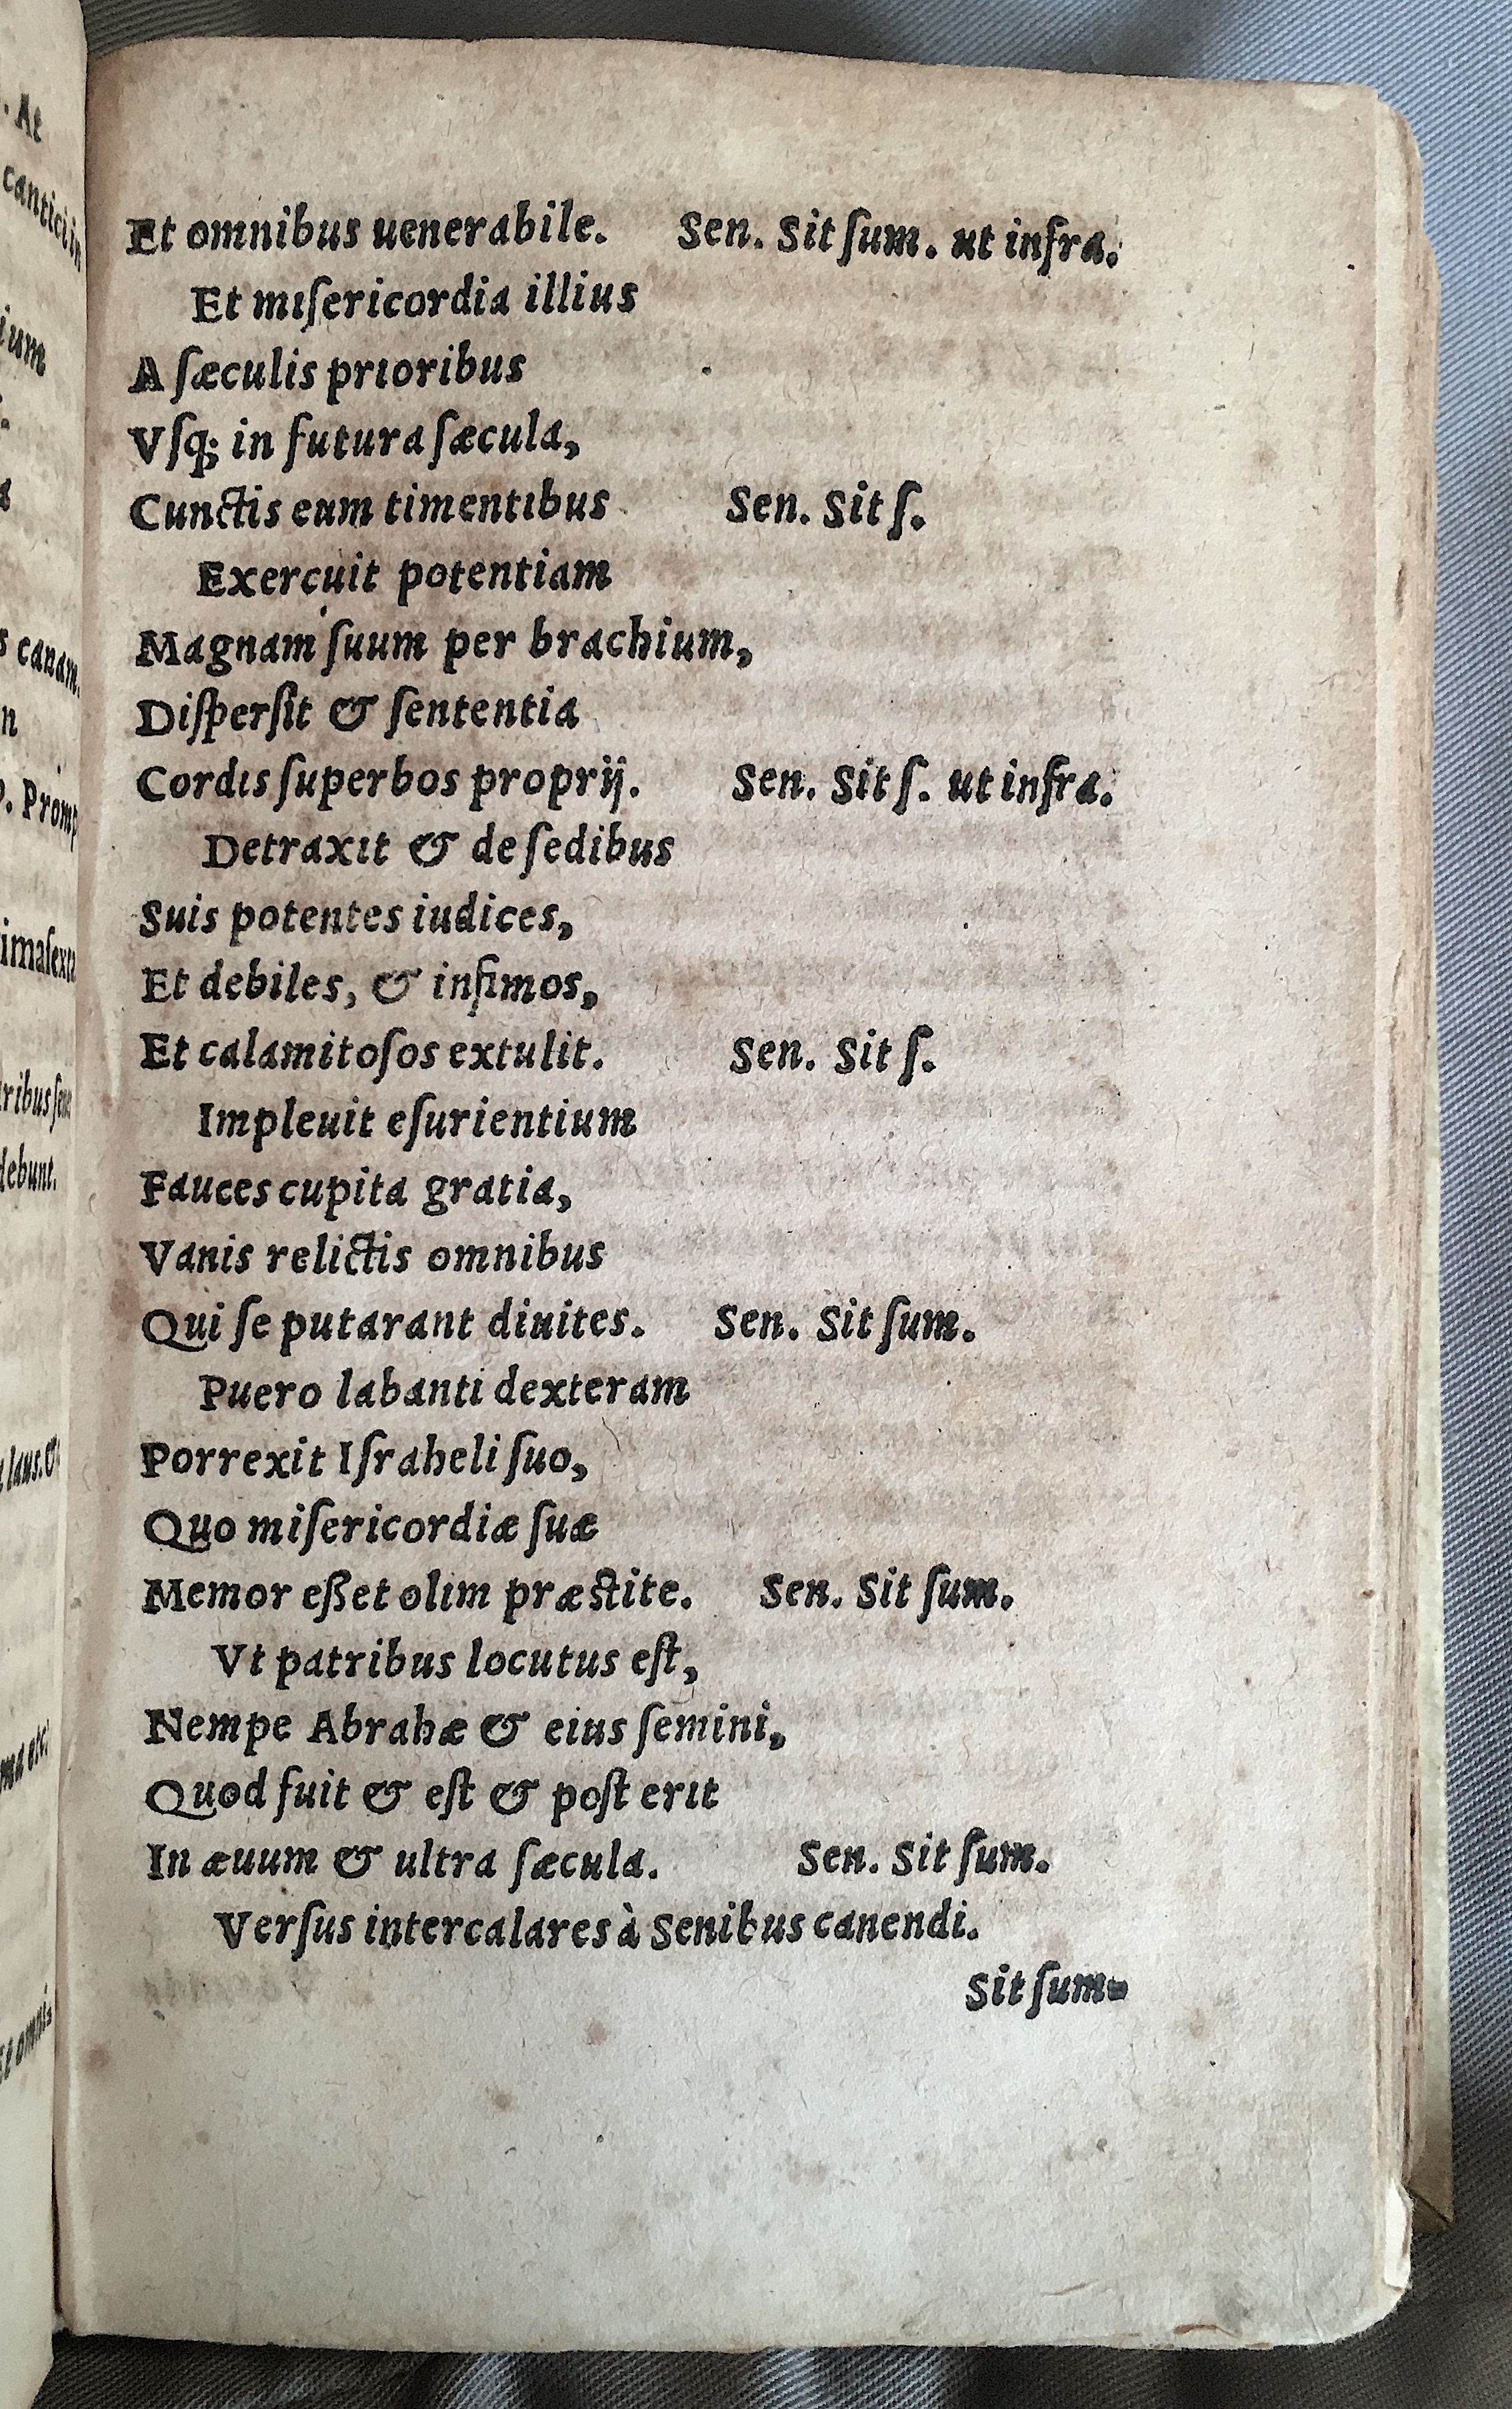 Et omnibus uenerabile. Sen. Sit ſum. ut infra.
Et miſericordia illius
A ſæculis prioribus
Vſq; in futura ſæcula,
Cunctis eum timentibus Sen. Sit ſ.
Exercuit potentiam
Magnam ſuum per brachium,
Diſperſit & ſententia
Cordis ſuperbos proprij. Sen. Sit ſ. ut infra.
Detraxit & de ſedibus
Suis potentes iudices,
Et debiles, & infimos,
Et calamitoſos extulit. Sen. Sit ſ.
Impleuit eſurientium
Fauces cupita gratia,
Vanis relictis omnibus
Qui ſe putarant diuites. Sen. Sit ſum.
Puero labanti dexteram
Porrexit Iſraheli ſuo,
Quo miſericordiæ ſuæ
Memor eßet olim præstite. Sen. Sit ſum.
Vt patribus locutus eſt,
Nempe Abrahæ & eius ſemini,
Quod fuit & eſt & poſt erit
In æuum & ultra ſæcula. Sen. Sit ſum.
Verſus intercalares à Senibus canendi.
Sit ſum-